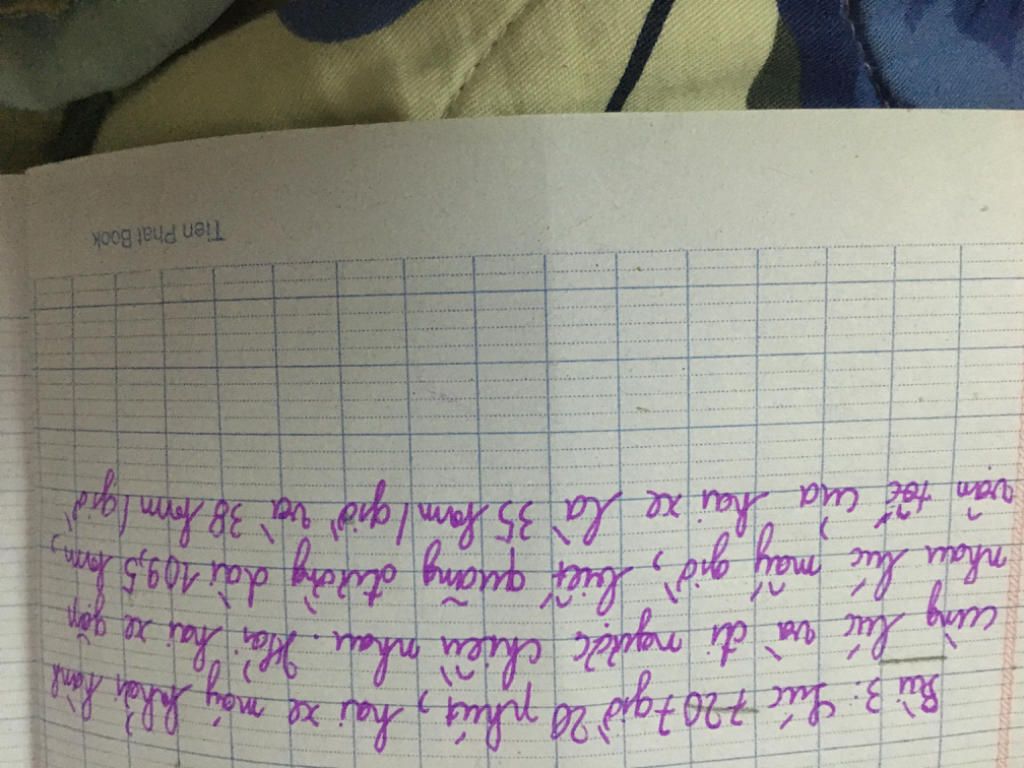 Bài 3: Lúc 7 20 7 giờ 20 phút, hai xe máy khởi hành
cùng lúc và đi ngược chiều nhau. Hỏi hai xe gặp
nhau lúc mấy giờ, biết quãng đường dài 109,5 km,
vận tốc của hai xe là 35 km/giờ và 38 km/giờ
Tien Phat Book